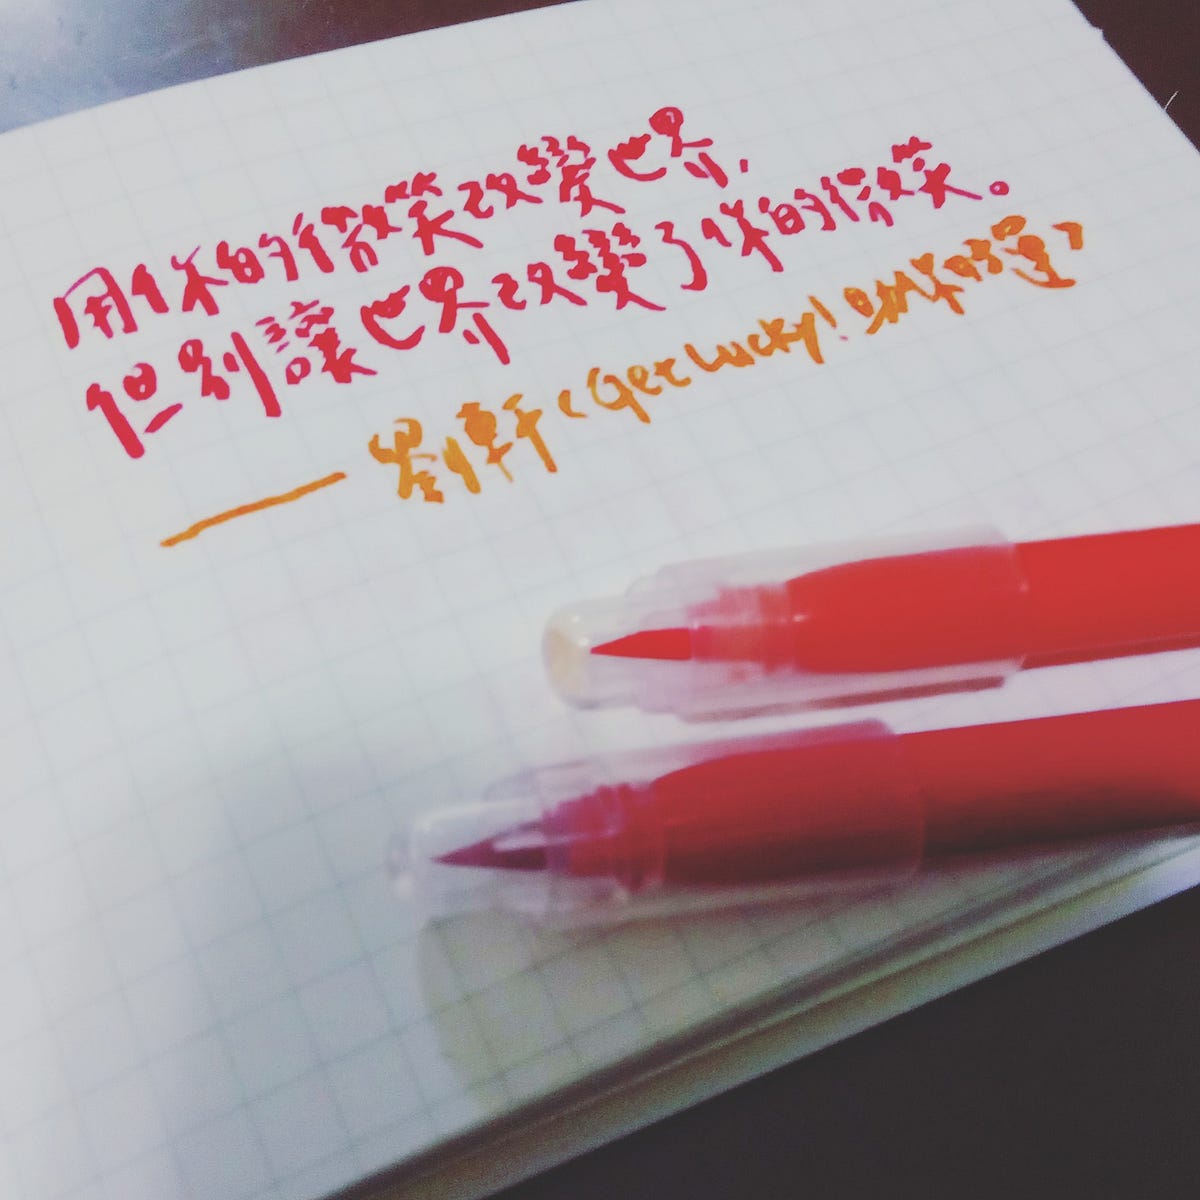 用你的微笑改變世界，
但別讓世界改變了你的微笑。
—— 劉軒《Get Lucky! 助你好運》